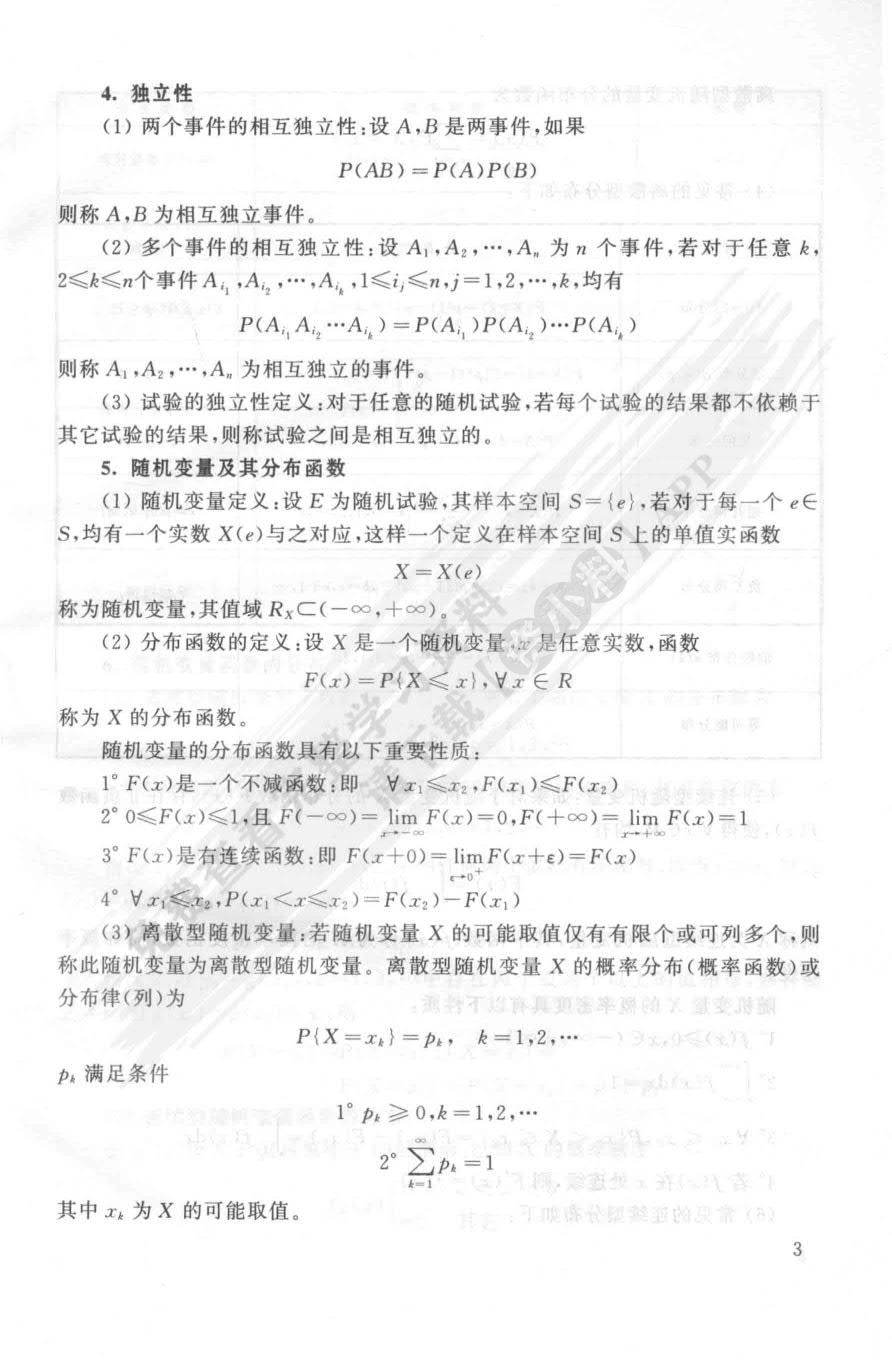 4. 独立性
(1) 两个事件的相互独立性:设 A,B 是两事件,如果
P(AB)=P(A)P(B)
则称 A,B 为相互独立事件。
(2) 多个事件的相互独立性:设 A₁,A₂,⋯,Aₙ 为 n 个事件,若对于任意 k,
2≤k≤n个事件 A_{i₁},A_{i₂},⋯,A_{iₖ},1≤iⱼ≤n,j=1,2,⋯,k,均有
P(A_{i₁}A_{i₂}⋯A_{iₖ})=P(A_{i₁})P(A_{i₂})⋯P(A_{iₖ})
则称 A₁,A₂,⋯,Aₙ 为相互独立的事件。
(3) 试验的独立性定义:对于任意的随机试验,若每个试验的结果都不依赖于
其它试验的结果,则称试验之间是相互独立的。
5. 随机变量及其分布函数
(1) 随机变量定义:设 E 为随机试验,其样本空间 S={e},若对于每一个 e∈
S,均有一个实数 X(e)与之对应,这样一个定义在样本空间 S 上的单值实函数
X=X(e)
称为随机变量,其值域 R_X⊂(−∞,+∞)。
(2) 分布函数的定义:设 X 是一个随机变量,x 是任意实数,函数
F(x)=P{X≤x},∀x∈R
称为 X 的分布函数。
随机变量的分布函数具有以下重要性质:
1° F(x)是一个不减函数:即 ∀x₁≤x₂,F(x₁)≤F(x₂)
2° 0≤F(x)≤1,且 F(−∞)=lim_{x→−∞}F(x)=0,F(+∞)=lim_{x→+∞}F(x)=1
3° F(x)是右连续函数:即 F(x+0)=lim_{ε→0⁺}F(x+ε)=F(x)
4° ∀x₁≤x₂,P(x₁<x≤x₂)=F(x₂)−F(x₁)
(3) 离散型随机变量:若随机变量 X 的可能取值仅有有限个或可列多个,则
称此随机变量为离散型随机变量。离散型随机变量 X 的概率分布(概率函数)或
分布律(列)为
P{X=xₖ}=pₖ, k=1,2,⋯
pₖ 满足条件
1° pₖ≥0,k=1,2,⋯
2° ∑_{k=1}^{∞}pₖ=1
其中 xₖ 为 X 的可能取值。
3
免费查看完整学习资料
请下载【给力小料】APP